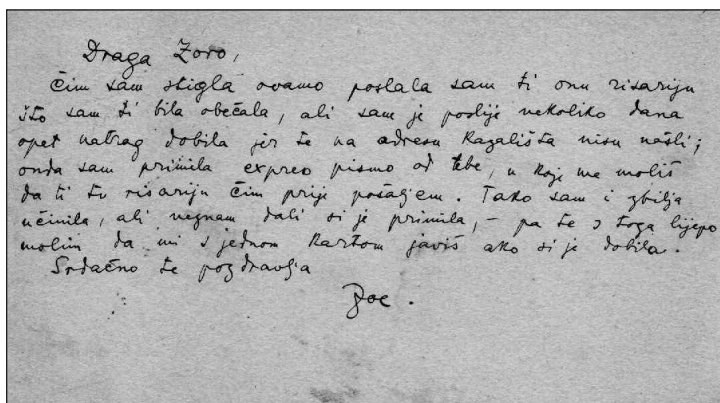 Draga Zoro,
čim sam stigla ovamo poslala sam ti onu risariju
što sam ti bila obećala, ali sam je poslije nekoliko dana
opet natrag dobila jer te na adresu Kazališta nisu našli;
onda sam primila expres pismo od tebe, u koje me moliš
da ti tu risariju čim prije pošaljem. Tako sam i zbilja
učinila, ali neznam dali si je primila, – pa te s toga lijepo
molim da mi s jednom kartom javiš ako si je dobila.
Srdačno te pozdravlja